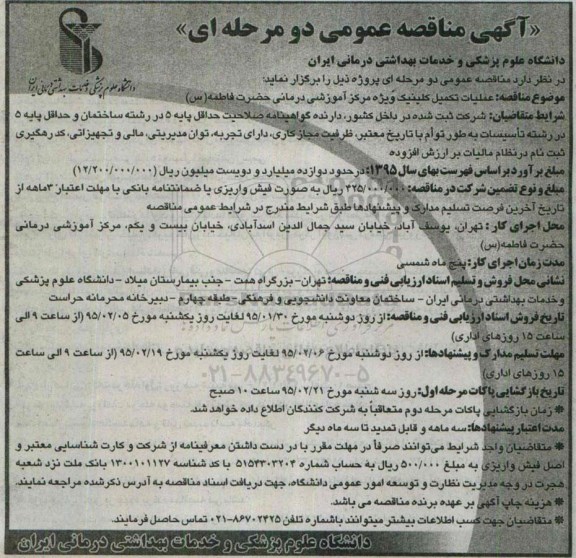 «آگهی مناقصه عمومی دو مرحله ای»
دانشگاه علوم پزشکی و خدمات بهداشتی درمانی ایران
دانشگاه علوم پزشکی و خدمات بهداشتی درمانی ایران
در نظر دارد مناقصه عمومی دو مرحله ای پروژه ذیل را برگزار نماید:
موضوع مناقصه: عملیات تکمیل کلینیک ویژه مرکز آموزشی درمانی حضرت فاطمه(س)
شرایط متقاضیان: شرکت ثبت شده در داخل کشور، دارنده گواهینامه صلاحیت حداقل پایه ۵ در رشته ساختمان و حداقل پایه ۵
در رشته تأسیسات به طور توأم با تاریخ معتبر، ظرفیت مجاز کاری، دارای تجربه، توان مدیریتی، مالی و تجهیزاتی، کد رهگیری
ثبت نام در نظام مالیات بر ارزش افزوده
مبلغ برآورد بر اساس فهرست بهای سال ۱۳۹۵: در حدود دوازده میلیارد و دویست میلیون ریال (۱۲/۲۰۰/۰۰۰/۰۰۰)
مبلغ و نوع تضمین شرکت در مناقصه: ۴۲۵/۰۰۰/۰۰۰ ریال به صورت فیش واریزی یا ضمانتنامه بانکی با مهلت اعتبار ۳ماهه از
تاریخ آخرین فرصت تسلیم مدارک و پیشنهادها طبق شرایط مندرج در شرایط عمومی مناقصه
محل اجرای کار: تهران، یوسف آباد، خیابان سید جمال الدین اسدآبادی، خیابان بیست و یکم، مرکز آموزشی درمانی
حضرت فاطمه(س)
مدت زمان اجرای کار: پنج ماه شمسی
نشانی محل فروش و تسلیم اسناد ارزیابی فنی و مناقصه: تهران- بزرگراه همت - جنب بیمارستان میلاد - دانشگاه علوم پزشکی
و خدمات بهداشتی درمانی ایران - ساختمان معاونت دانشجویی و فرهنگی - طبقه چهارم - دبیرخانه محرمانه حراست
تاریخ فروش اسناد ارزیابی فنی و مناقصه: از روز دوشنبه مورخ ۹۵/۰۱/۳۰ لغایت روز یکشنبه مورخ ۹۵/۰۲/۰۵ (از ساعت ۹ الی
ساعت ۱۵ روزهای اداری)
مهلت تسلیم مدارک و پیشنهادها: از روز دوشنبه مورخ ۹۵/۰۲/۰۶ لغایت روز یکشنبه مورخ ۹۵/۰۲/۱۹ (از ساعت ۹ الی ساعت
۱۵ روزهای اداری)
۰۲۱-۸۸۳۴۹۶۷۰-۵
تاریخ بازگشایی پاکات مرحله اول: روز سه شنبه مورخ ۹۵/۰۲/۲۱ ساعت ۱۰ صبح
* زمان بازگشایی پاکات مرحله دوم متعاقباً به شرکت کنندگان اطلاع داده خواهد شد.
مدت اعتبار پیشنهادها: سه ماهه و قابل تمدید تا سه ماه دیگر
* متقاضیان واجد شرایط می‌توانند صرفاً در مهلت مقرر با در دست داشتن معرفینامه از شرکت و کارت شناسایی معتبر و
اصل فیش واریزی به مبلغ ۵۰۰/۰۰۰ ریال به حساب شماره ۵۱۵۴۳۰۳۲۰۴ با کد شناسه ۱۳۰۰۱۰۱۱۲۷ بانک ملت نزد شعبه
هجرت در وجه مدیریت نظارت و توسعه امور عمومی دانشگاه، جهت دریافت اسناد مناقصه به آدرس ذکرشده مراجعه نمایند.
* هزینه چاپ آگهی بر عهده برنده مناقصه می باشد.
* متقاضیان جهت کسب اطلاعات بیشتر میتوانند باشماره تلفن ۸۶۷۰۲۴۲۵-۰۲۱ تماس حاصل فرمایند.
دانشگاه علوم پزشکی و خدمات بهداشتی درمانی ایران